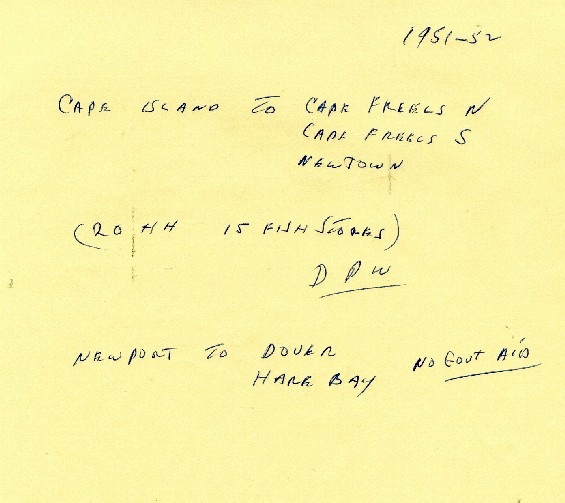 1951-52
CAPE ISLAND TO CAPE FREELS N
CAPE FREELS S
NEWTOWN
(20 HH 15 FISH STORES)
DPW
NEWPORT TO DOVER NO GOVT AID
HARE BAY